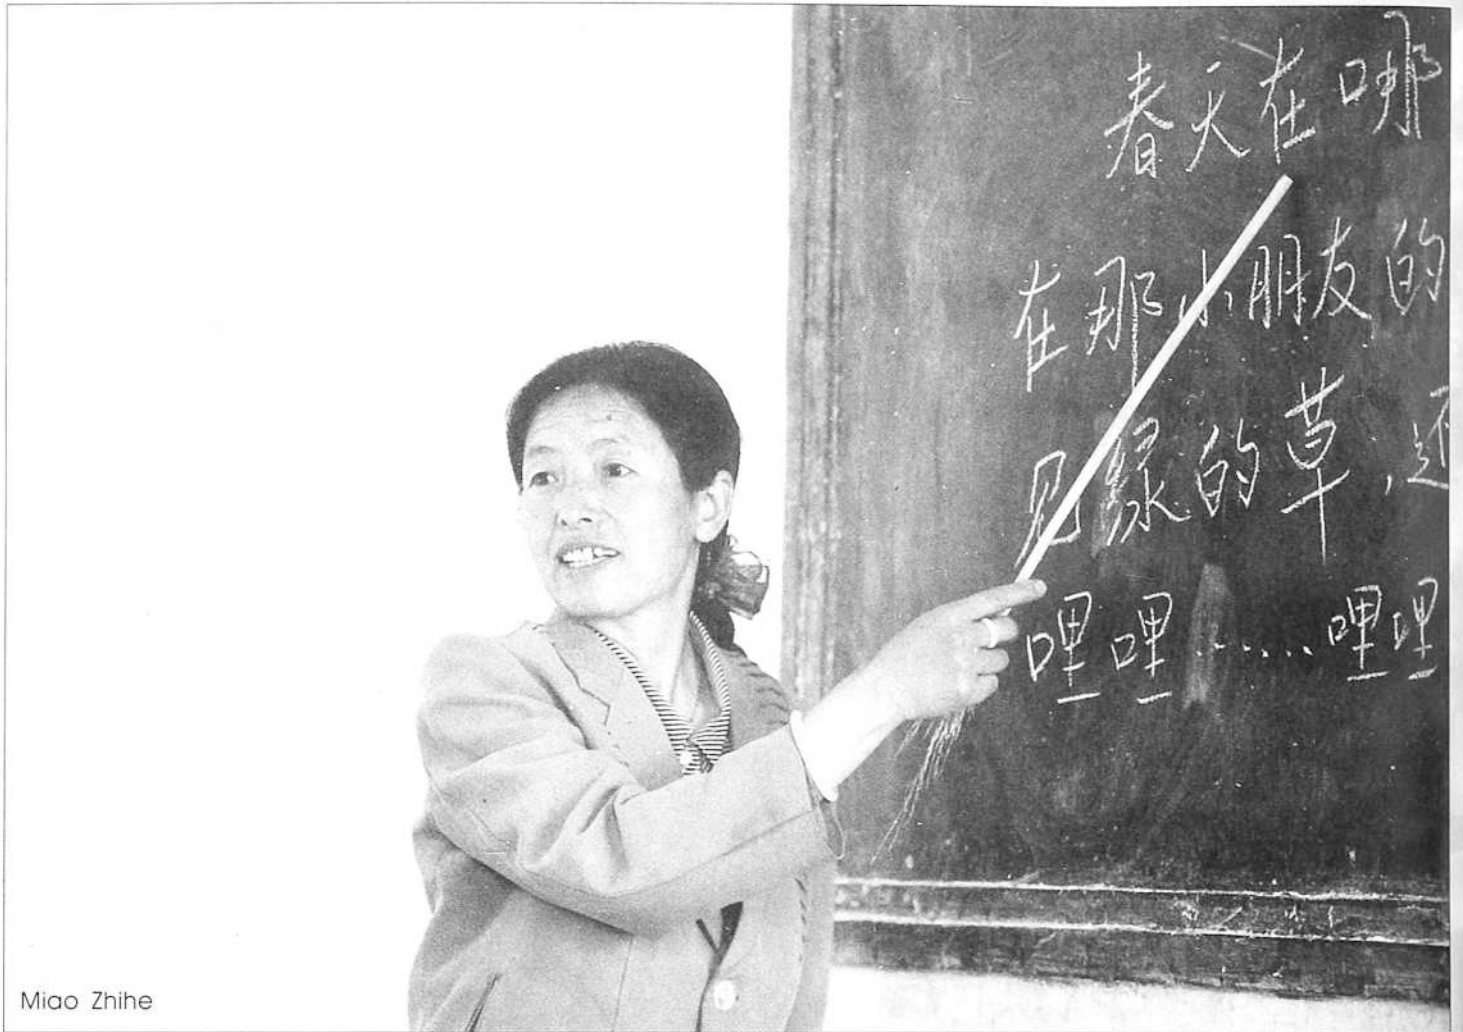 春天在哪
在那小朋友的
见绿的草,还
哩哩……哩哩
Miao Zhihe